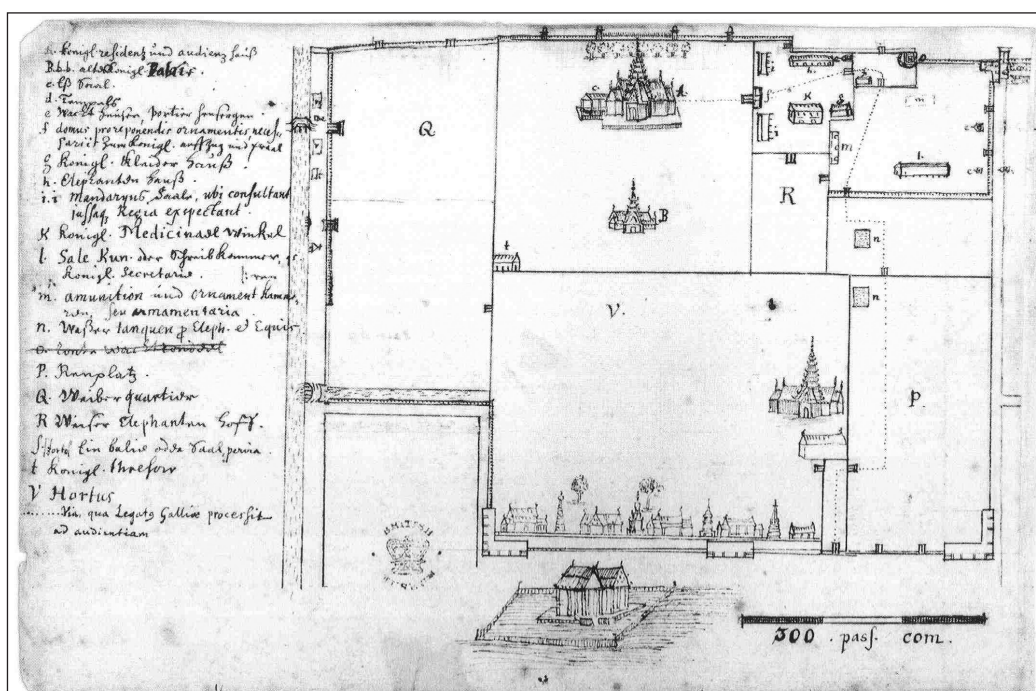 A. königl. residentz und audienz hauß
B.b.b. alte königl. Palais.
c. Eß Saal.
d. Tempels
e Wacht häuser, portier
f domus pro reponendis ornamentis neces
sariis zum königl. auffzug und
g königl. kleider hauß.
h. Elephanten hauß.
i.i Mandaryns Saale, ubi consultant
jussaq Regia expectant.
K königl. Medicinael Winkel
l. Sale Kun. oder Schreibkammer,
königl. Secretarie.
m. amunition und ornament kam
seu armamentaria.
n. Waßer tanquen p Eleph. et Equis
P. Renplatz.
Q. Weiber quartier
R Weißer Elephanten Hoff.
Ein oder Saal
t königl. thresor
V Hortus
........ Via, qua Legatg Galliæ processit
ad audientiam
Q
c.
A
B
t
V.
R
f
i
i
h.
K
g
m
m
l.
e
e
n
n
P.
BRITISH
MUSEUM
300 . pass. com.